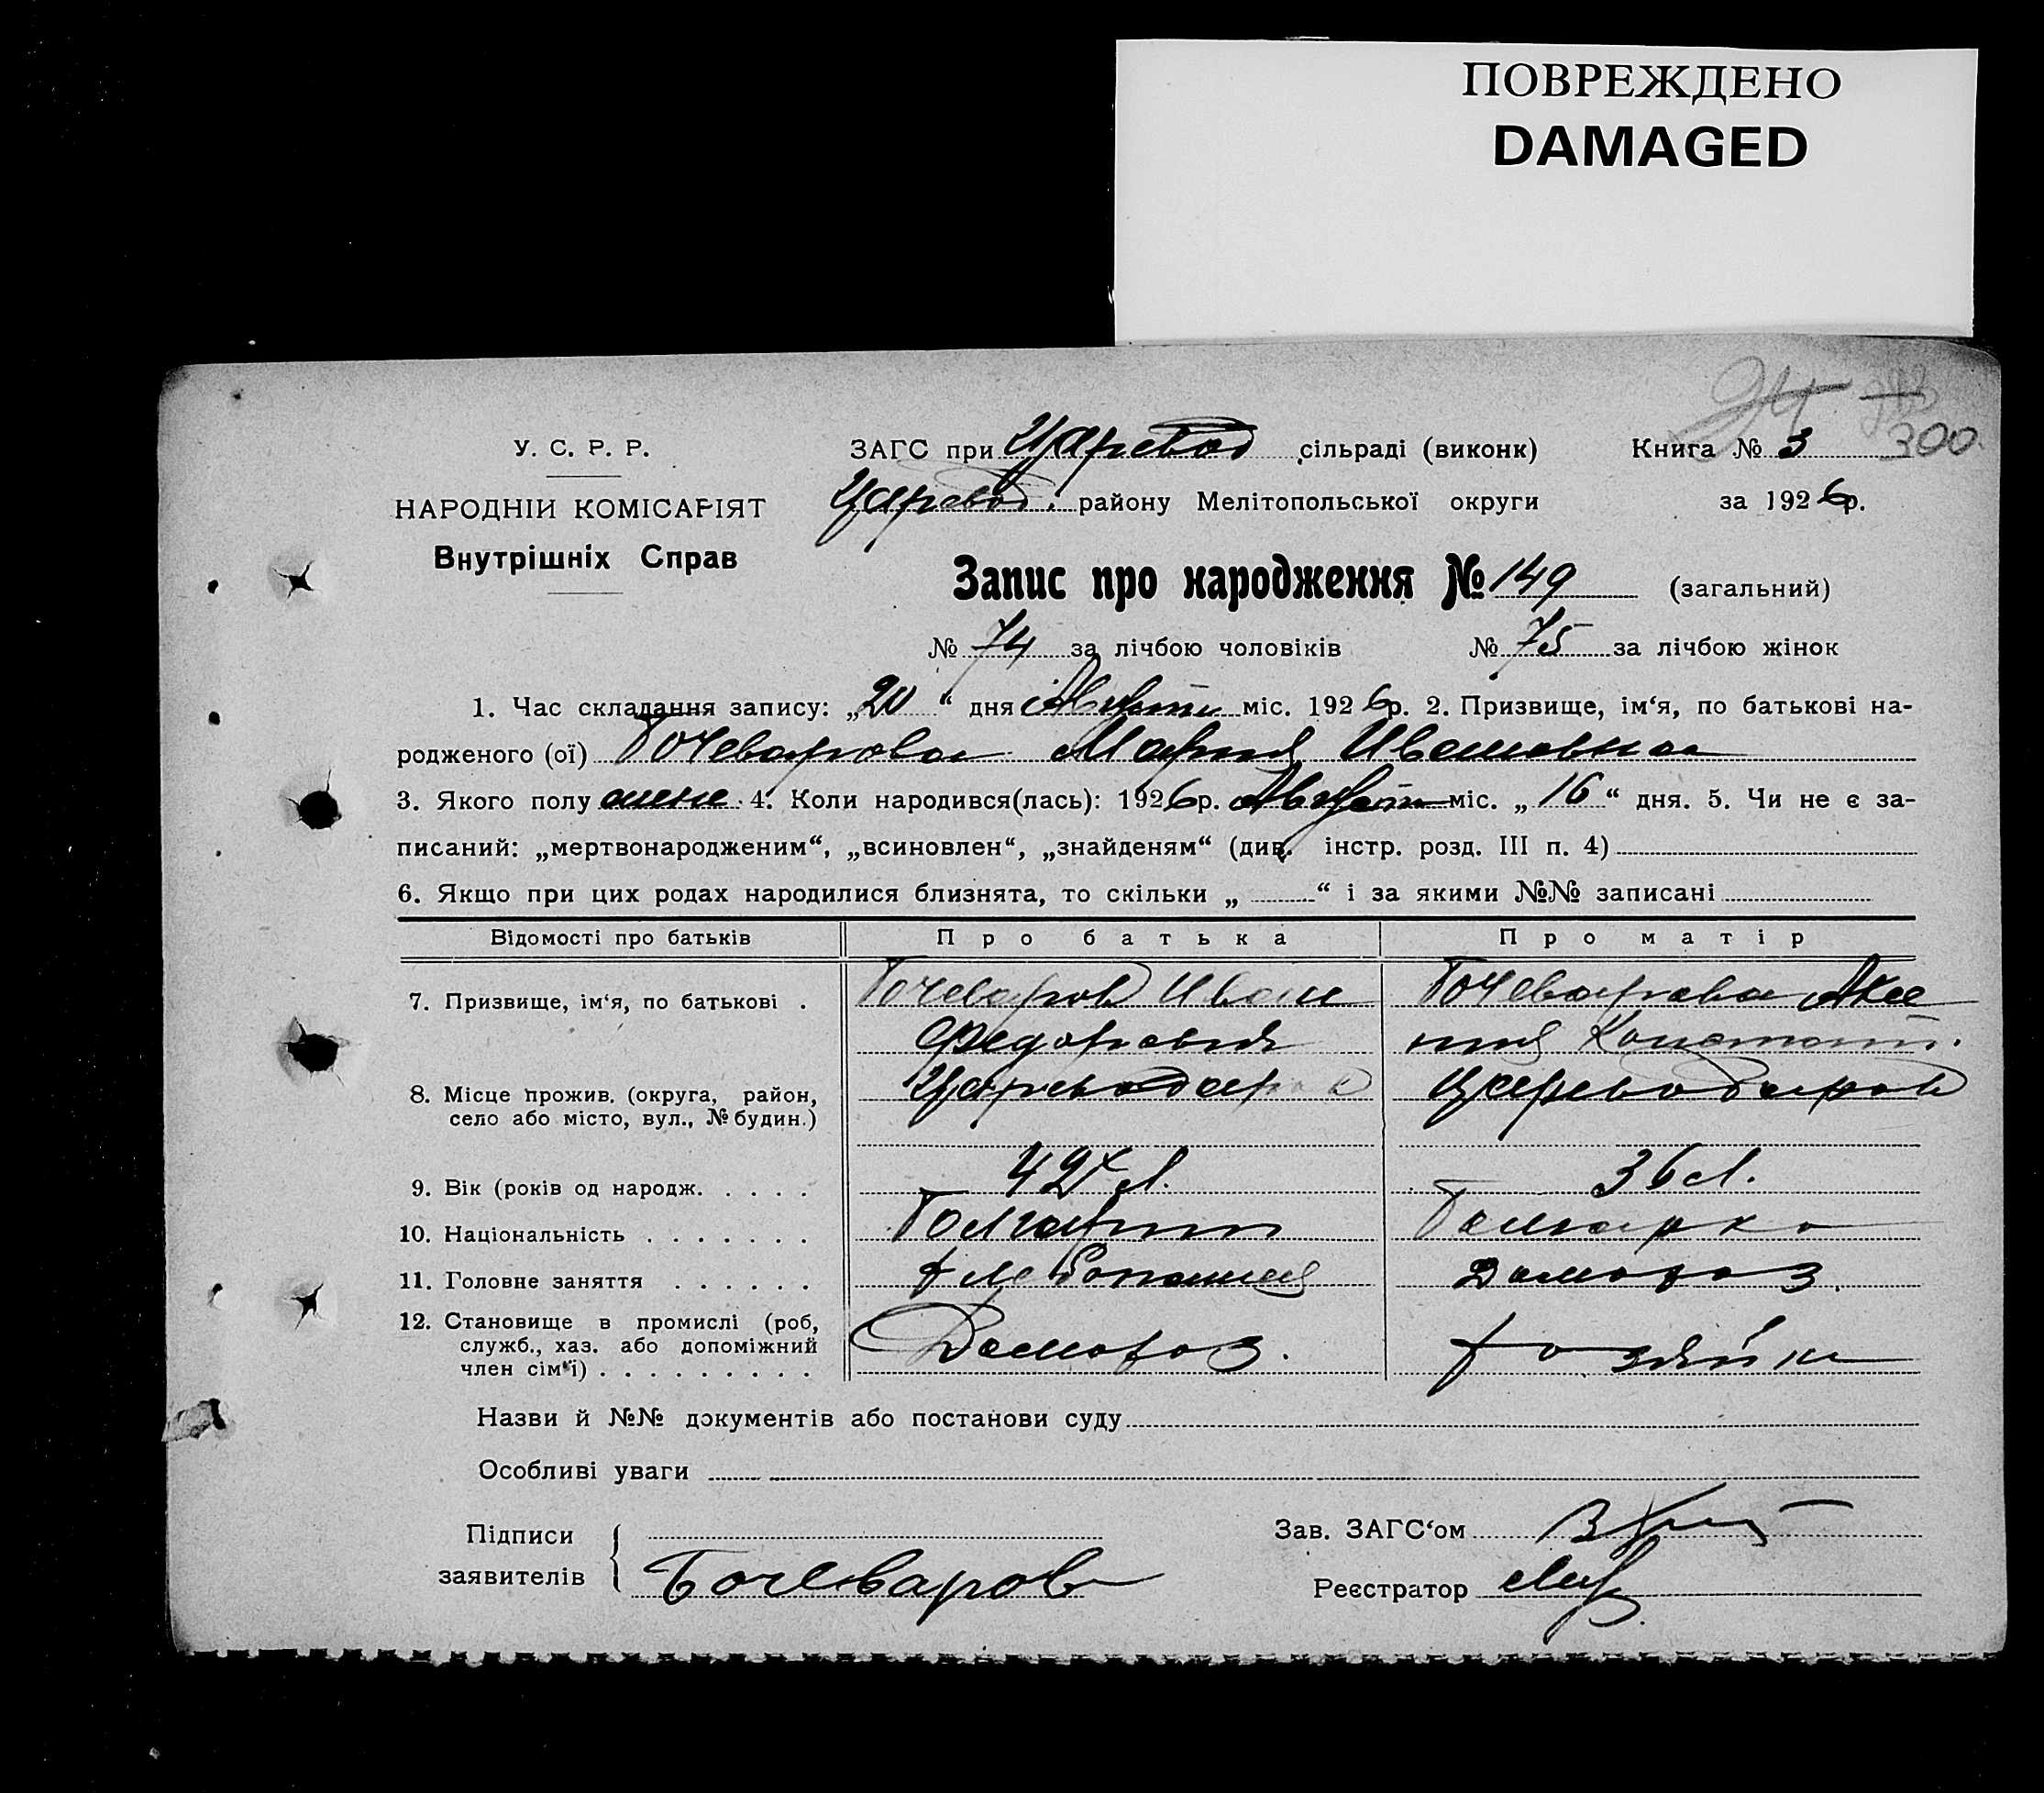 ПОВРЕЖДЕНО
DAMAGED
300
У. С. Р. Р.
НАРОДНІЙ КОМІСАРІЯТ
Внутрішніх Справ
ЗАГС при Царевод сільраді (виконк)
Царевод. району Мелітопольської округи
Книга № 3
за 1926р.
Запис про народження № 149 (загальний)
№ 74 за лічбою чоловіків № 75 за лічбою жінок
1. Час складання запису: „20“ дня Август міс. 1926р. 2. Призвище, ім‘я, по батькові на-
родженого (ої) Бочеварова Мария Ивановна
3. Якого полу жене 4. Коли народився(лась): 1926р. Август міс. „16“ дня. 5. Чи не є за-
писаний: „мертвонародженим“, „всиновлен“, „знайденям“ (див. інстр. розд. III п. 4)
6. Якщо при цих родах народилися близнята, то скільки „ “ і за якими №№ записані
Відомості про батьків Про батька Про матір
7. Призвище, ім‘я, по батькові . Бочеваров Иван Бочеварова Аксе
Федорович ния Констант.
8. Місце прожив. (округа, район, Цареводаров Цареводаров
село або місто, вул., № будин.)
9. Вік (років од народж. . . . . 42 л. 36 л.
10. Національність . . . . . . . Болгарин Болгарка
11. Головне заняття . . . . . . Хлебопашец Домохоз.
12. Становище в промислі (роб, Домохоз. хозяйка
служб., хаз. або допоміжний
член сім‘ї) . . . . . . . . .
Назви й №№ документів або постанови суду
Особливі уваги
Підписи
заявителів Бочеваров
Зав. ЗАГС‘ом
Реєстратор